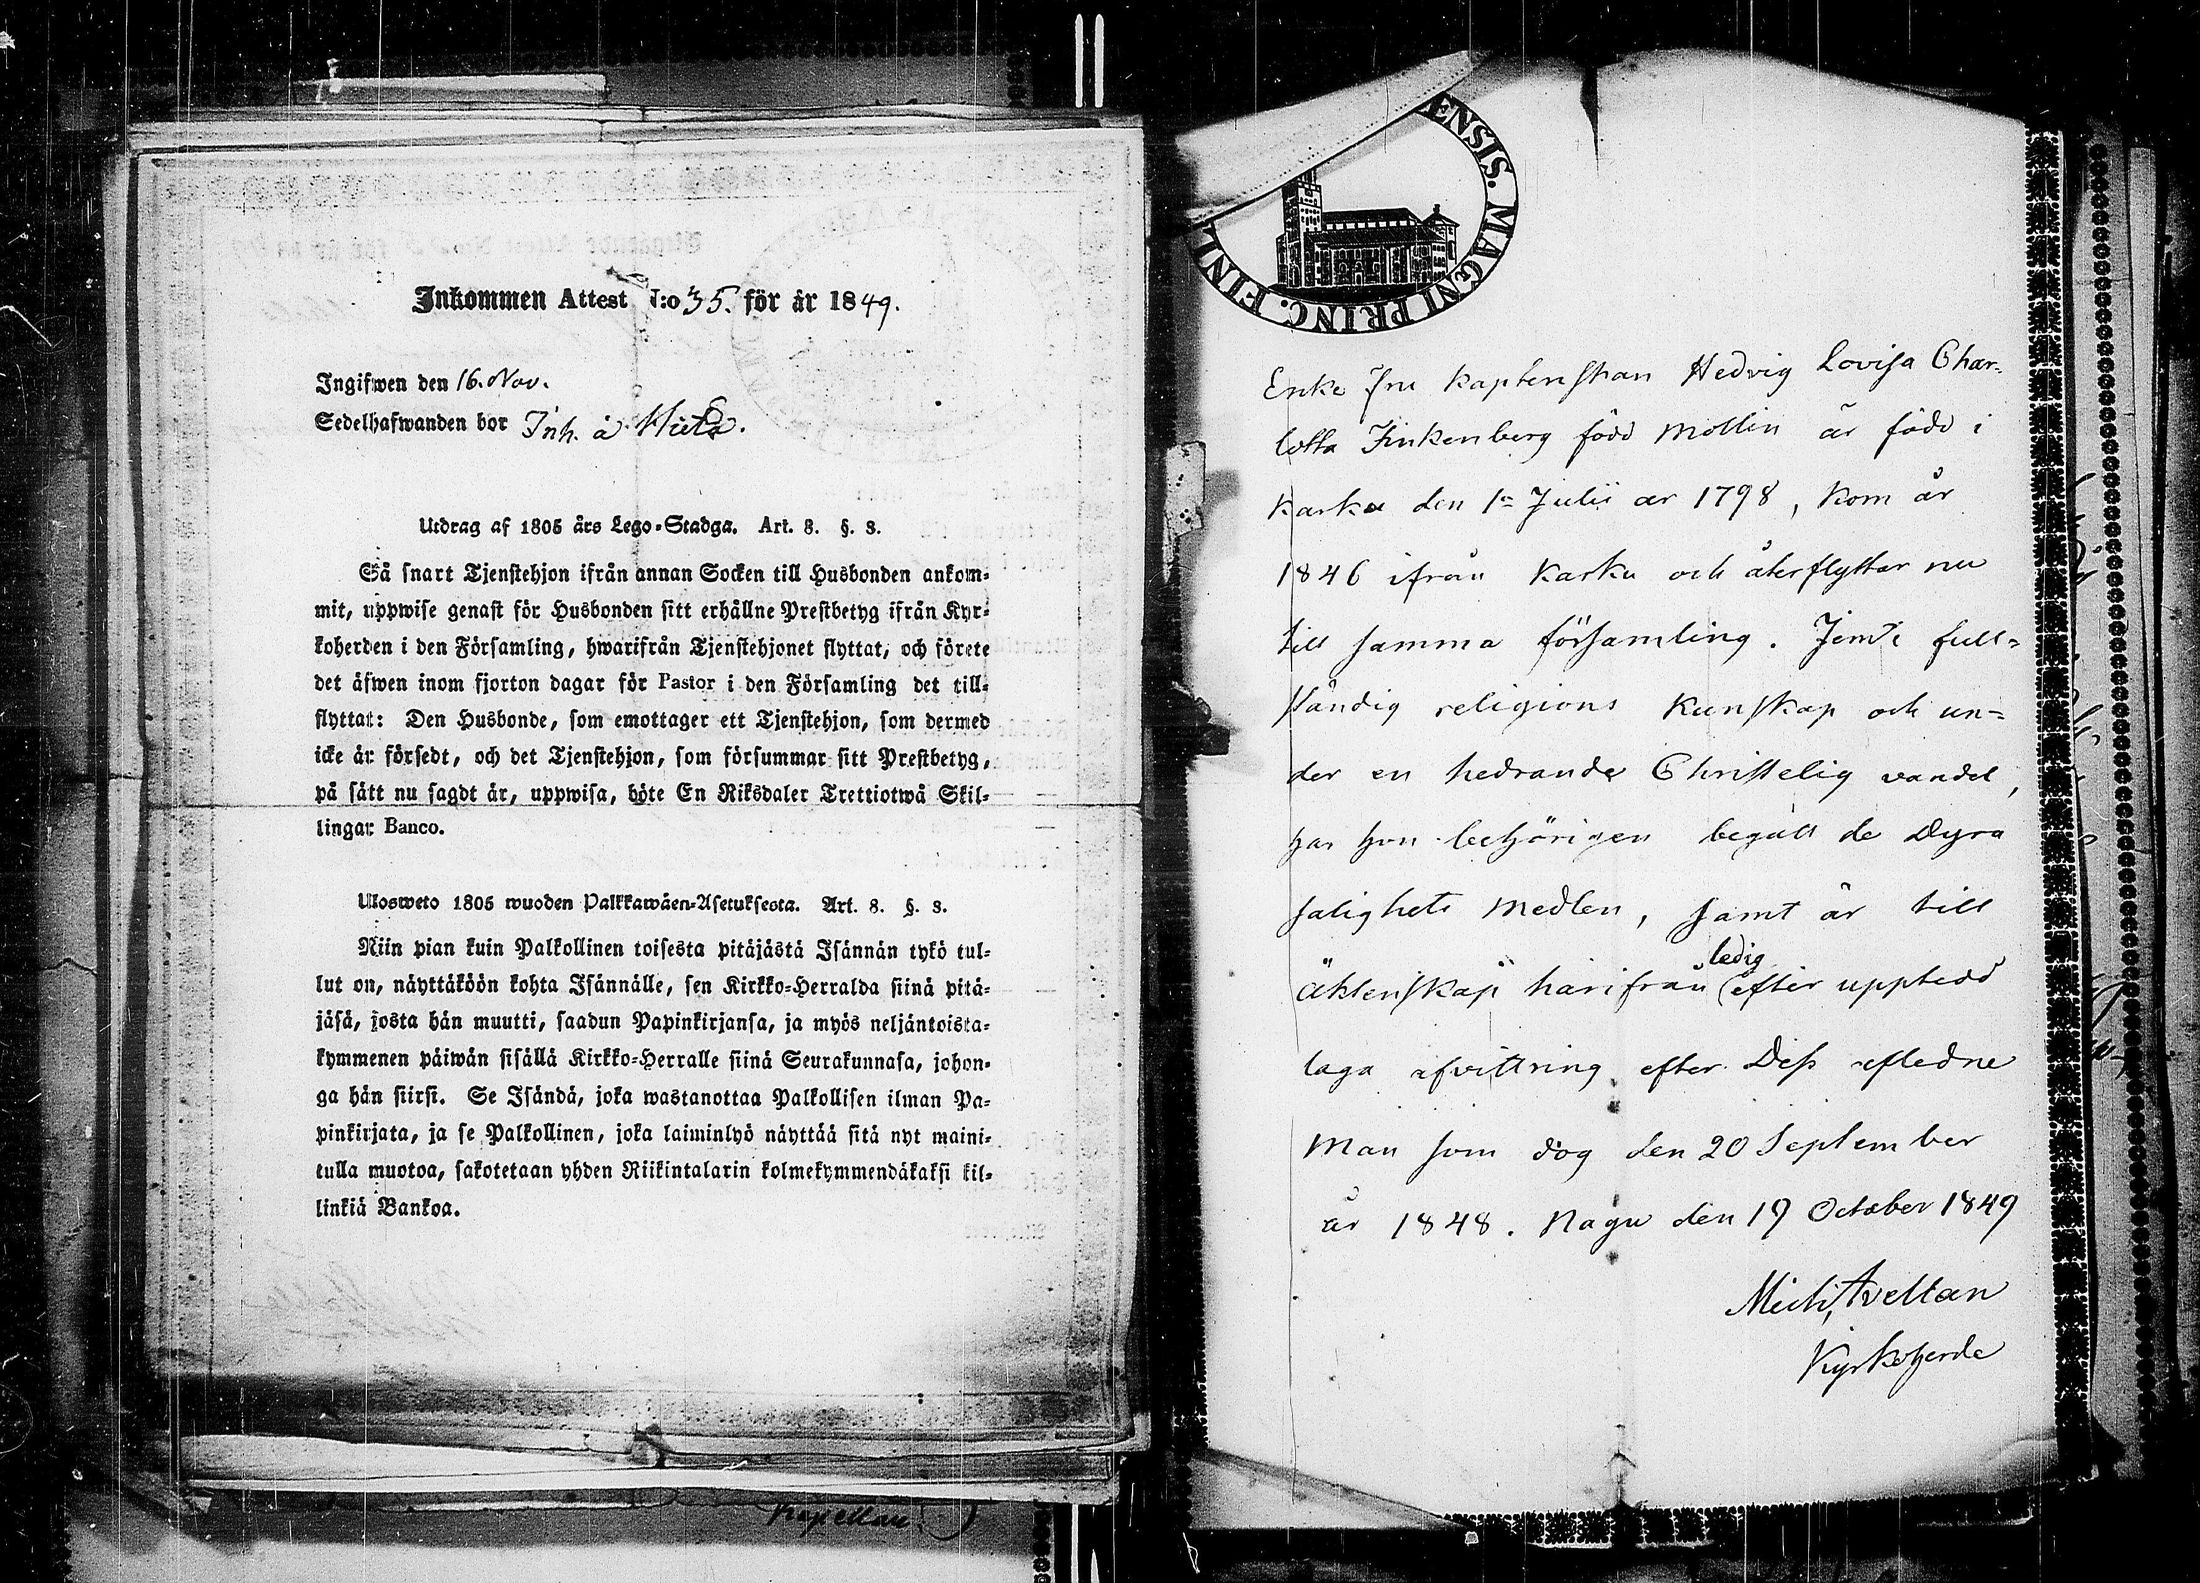 Inkommen Attest N:o 35. för år 1849.
Ingifwen den 16. Nov.
Sedelhafwanden bor Inh. å
Utdrag af 1805 års Lego-Stadga. Art. 8. §. 3.
Så snart Tjenstehjon ifrån annan Socken till Husbonden ankom-
mit, uppwise genast för Husbonden sitt erhållne Prestbetyg ifrån Kyr-
koherden i den Församling, hwarifrån Tjenstehjonet flyttat, och förete
det äfwen inom fjorton dagar för Pastor i den Församling det till-
flyttat: Den Husbonde, som emottager ett Tjenstehjon, som dermed
icke är försedt, och det Tjenstehjon, som försummar sitt Prestbetyg,
på sätt nu sagdt är, uppwisa, böte En Riksdaler Trettiotwå Skil-
lingar Banco.
Ulosweto 1805 wuoden Palkkawäen-Asetuksesta. Art. 8. §. 3.
Niin pian kuin Palkollinen toisesta pitäjästä Isännän tykö tul-
lut on, näyttäköön kohta Isännälle, sen Kirkko-Herralda siinä pitä-
jäsä, josta hän muutti, saadun Papinkirjansa, ja myös neljäntoista-
kymmenen päiwän sisällä Kirkko-Herralle siinä Seurakunnasa, johon-
ga hän siirsi. Se Isändä, joka wastanottaa Palkollisen ilman Pa-
pinkirjata, ja se Palkollinen, joka laiminlyö näyttää sitä nyt maini-
tulla muotoa, sakotetaan yhden Riikintalarin kolmekymmendäkaksi kil-
linkiä Bankoa.
Kapellan.
ENSIS. MAGNI PRINC. FINL
Enke fru Kaptenskan Hedvig Lovisa Char-
lotta Finkenberg född Mollin är född i
Karku den 1ª Julii år 1798, kom år
1846 ifrån Karku och återflyttar nu
till samma församling. Jemte full-
ständig religions kunskap och un-
der en hedrande Christelig vandel,
har hon behörigen begått de Dyra
salighets medlen, samt är till
ledig
äktenskap härifrån efter uppteedd
laga afvittring efter Dess afledne
Man som dog den 20 September
år 1848. Nagu den 19 October 1849
Mich. Avellan
Kyrkoherde